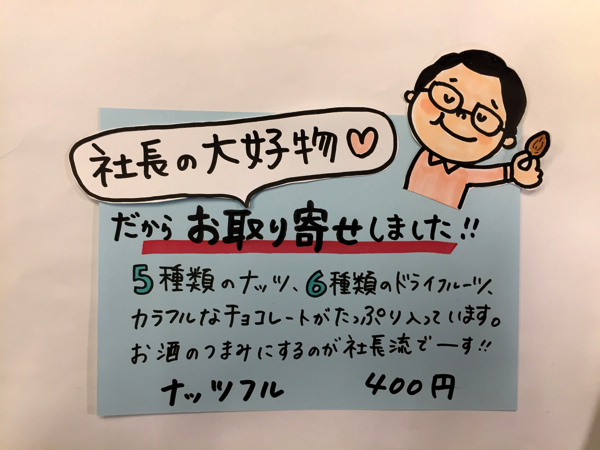 社長の大好物♡
だからお取り寄せしました!!
5種類のナッツ、6種類のドライフルーツ、
カラフルなチョコレートがたっぷり入っています。
お酒のつまみにするのが社長流でーす!!
ナッツフル 400円